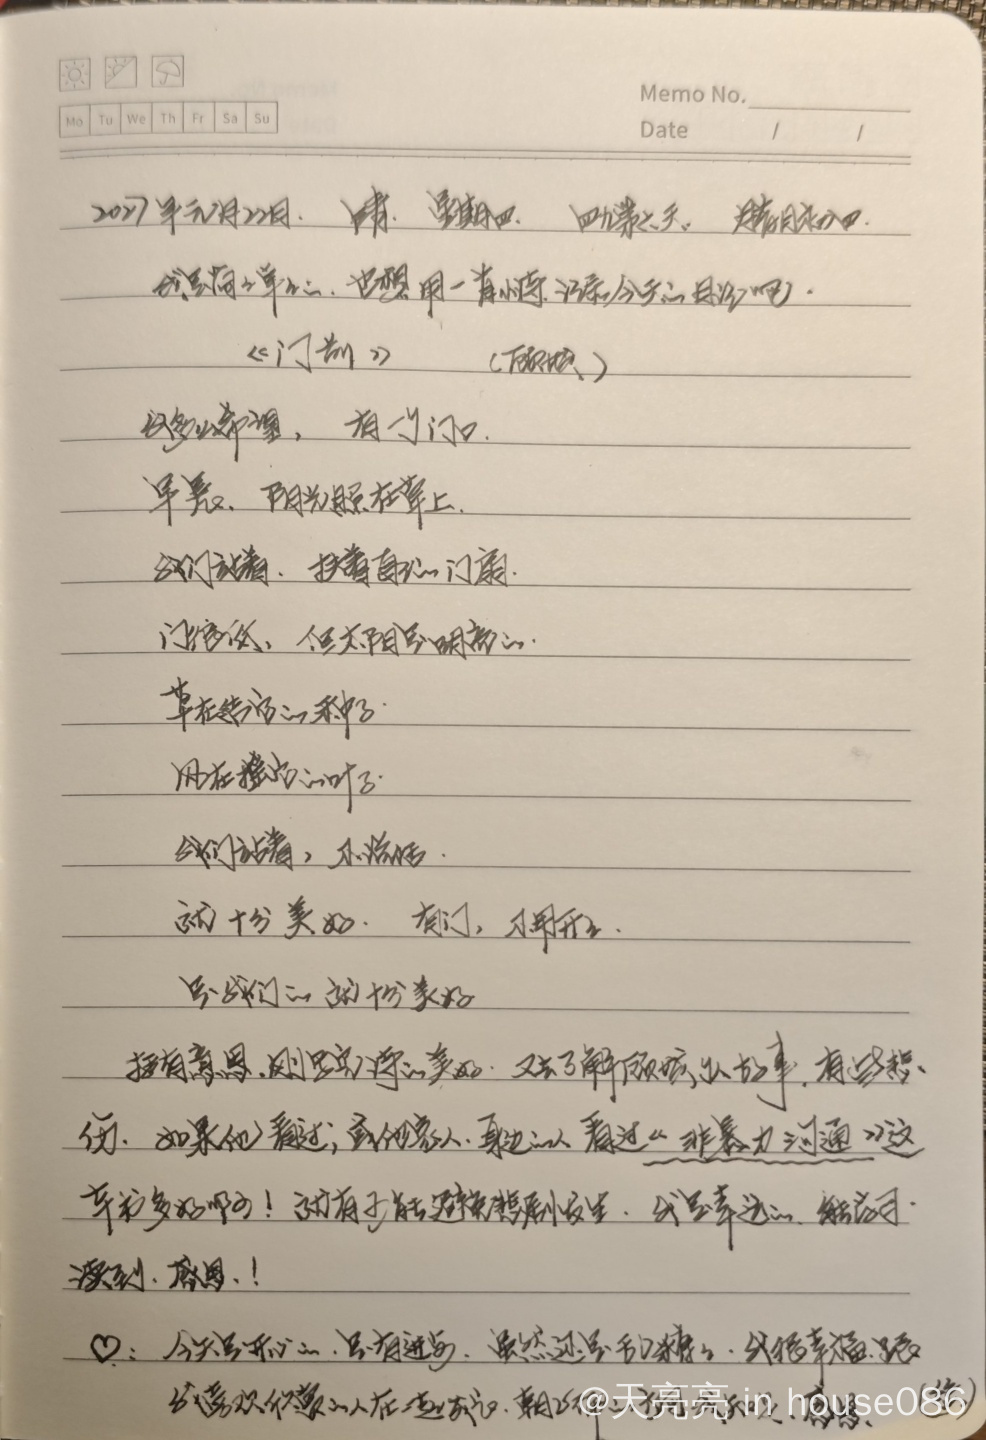 Memo No.
Mo Tu We Th Fr Sa Su
Date / /
2027年元月22日. 晴. 星期四. 四九第六天.
我是简简单单的. 也想用一首小诗. 记录今天的日课吧.
《门前》 (顾城)
我多么希望, 有一个门口.
早晨. 阳光照在草上.
我们站着. 扶着自己的门扇.
门很低, 但太阳是明亮的.
草在结它的种子.
风在摇它的叶子.
我们站着, 不说话.
就十分美好. 有门, 不用开.
是我们的 就十分美好
挺有意思. 刚 诗的美好. 又去了解顾城的故事, 有些悲
伤. 如果他看过, 或他家人. 身边的人看过《非暴力沟通》这
本书多好啊! 就有可能避免悲剧发生. 我是幸运的.
读到. 感恩.!
♡: 今天是开心的. 是有进步. 虽然还是 我很幸福
我喜欢和 的人在一起
@天亮亮 in house086